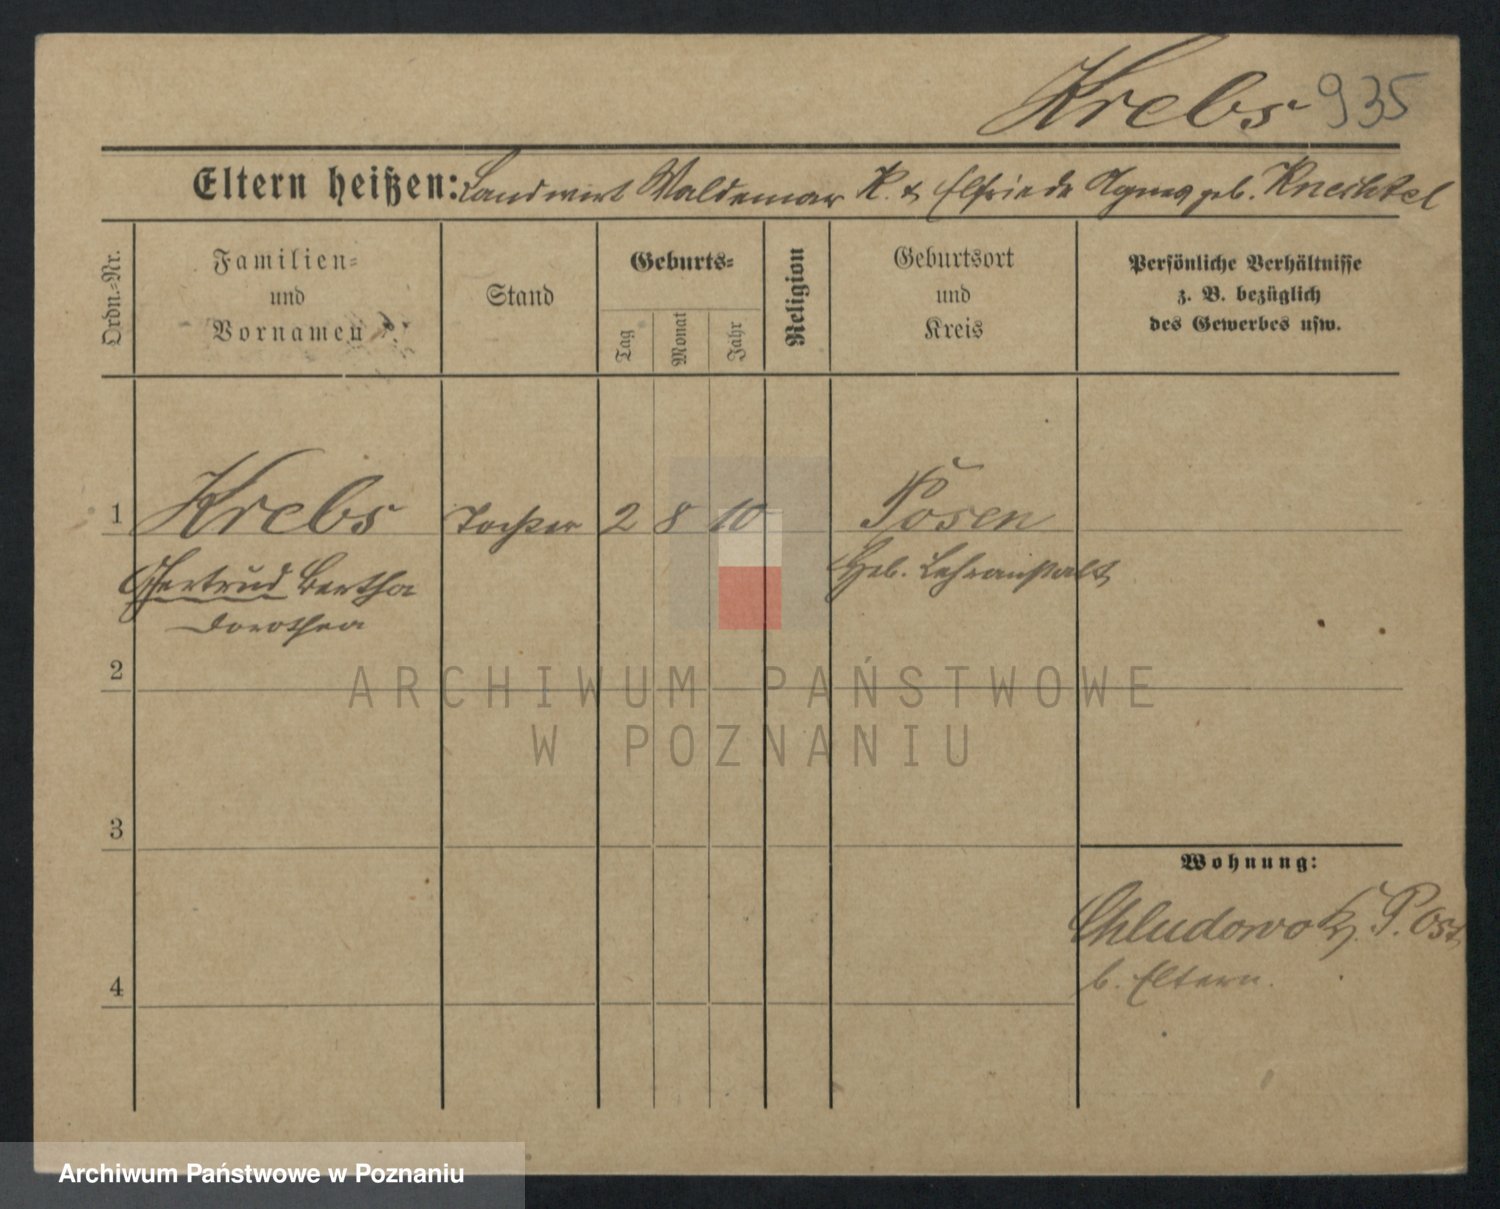 Krebs 935
Eltern heißen: Landwirt Waldemar K. & Elfriede Agnes geb. Knechtel
Ordn.-Nr.
Familien-
und
Vornamen
Stand
Geburts-
Tag
Monat
Jahr
Religion
Geburtsort
und
Kreis
Persönliche Verhältnisse
z. B. bezüglich
des Gewerbes usw.
1 Krebs Tochter 2 8 10 Posen
Gertrud Bertha Heb. Lehranstalt
Dorothea
2
ARCHIWUM PAŃSTWOWE
W POZNANIU
3
Wohnung:
Chludowo Kr. P. Ost
b. Eltern.
4
Archiwum Państwowe w Poznaniu